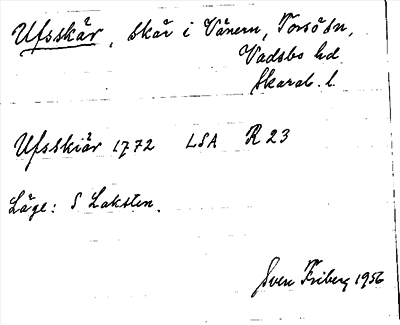 Ufsskär, skär i Vänern, Torsö sn,
Vadsbo hd
Skarab. l.
Ufsskiär 1772 LSA R 23
Läge: S Laksten.
Sven Friberg 1956